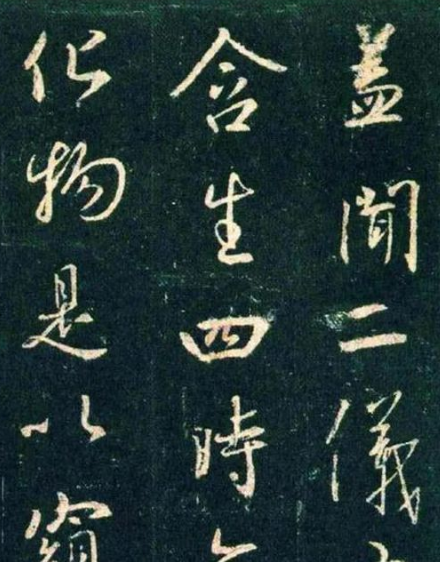 盖聞二儀
含生四時
化物是以窺